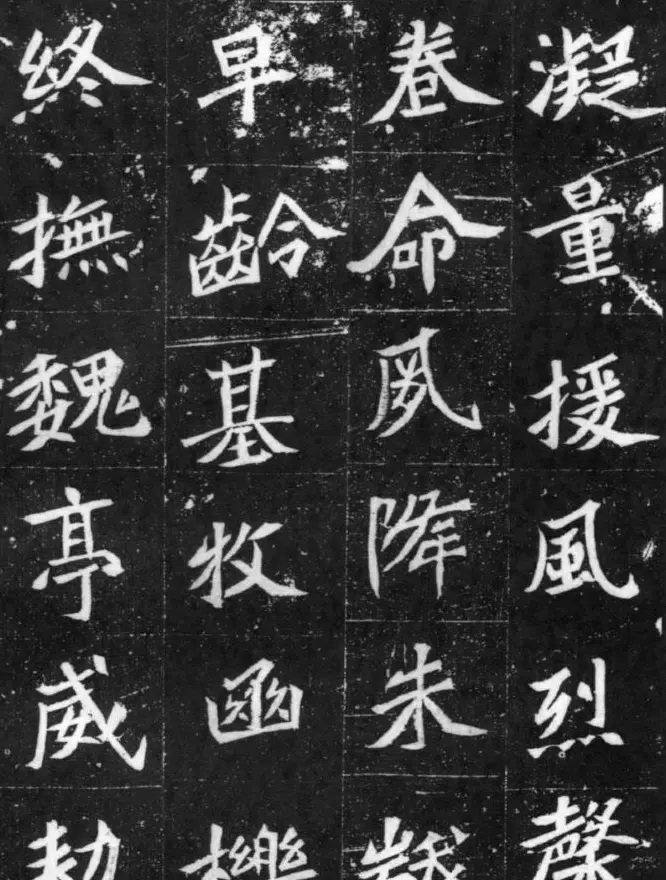 凝量援風烈
眷命夙降朱
早齡基牧函
終撫魏亭威